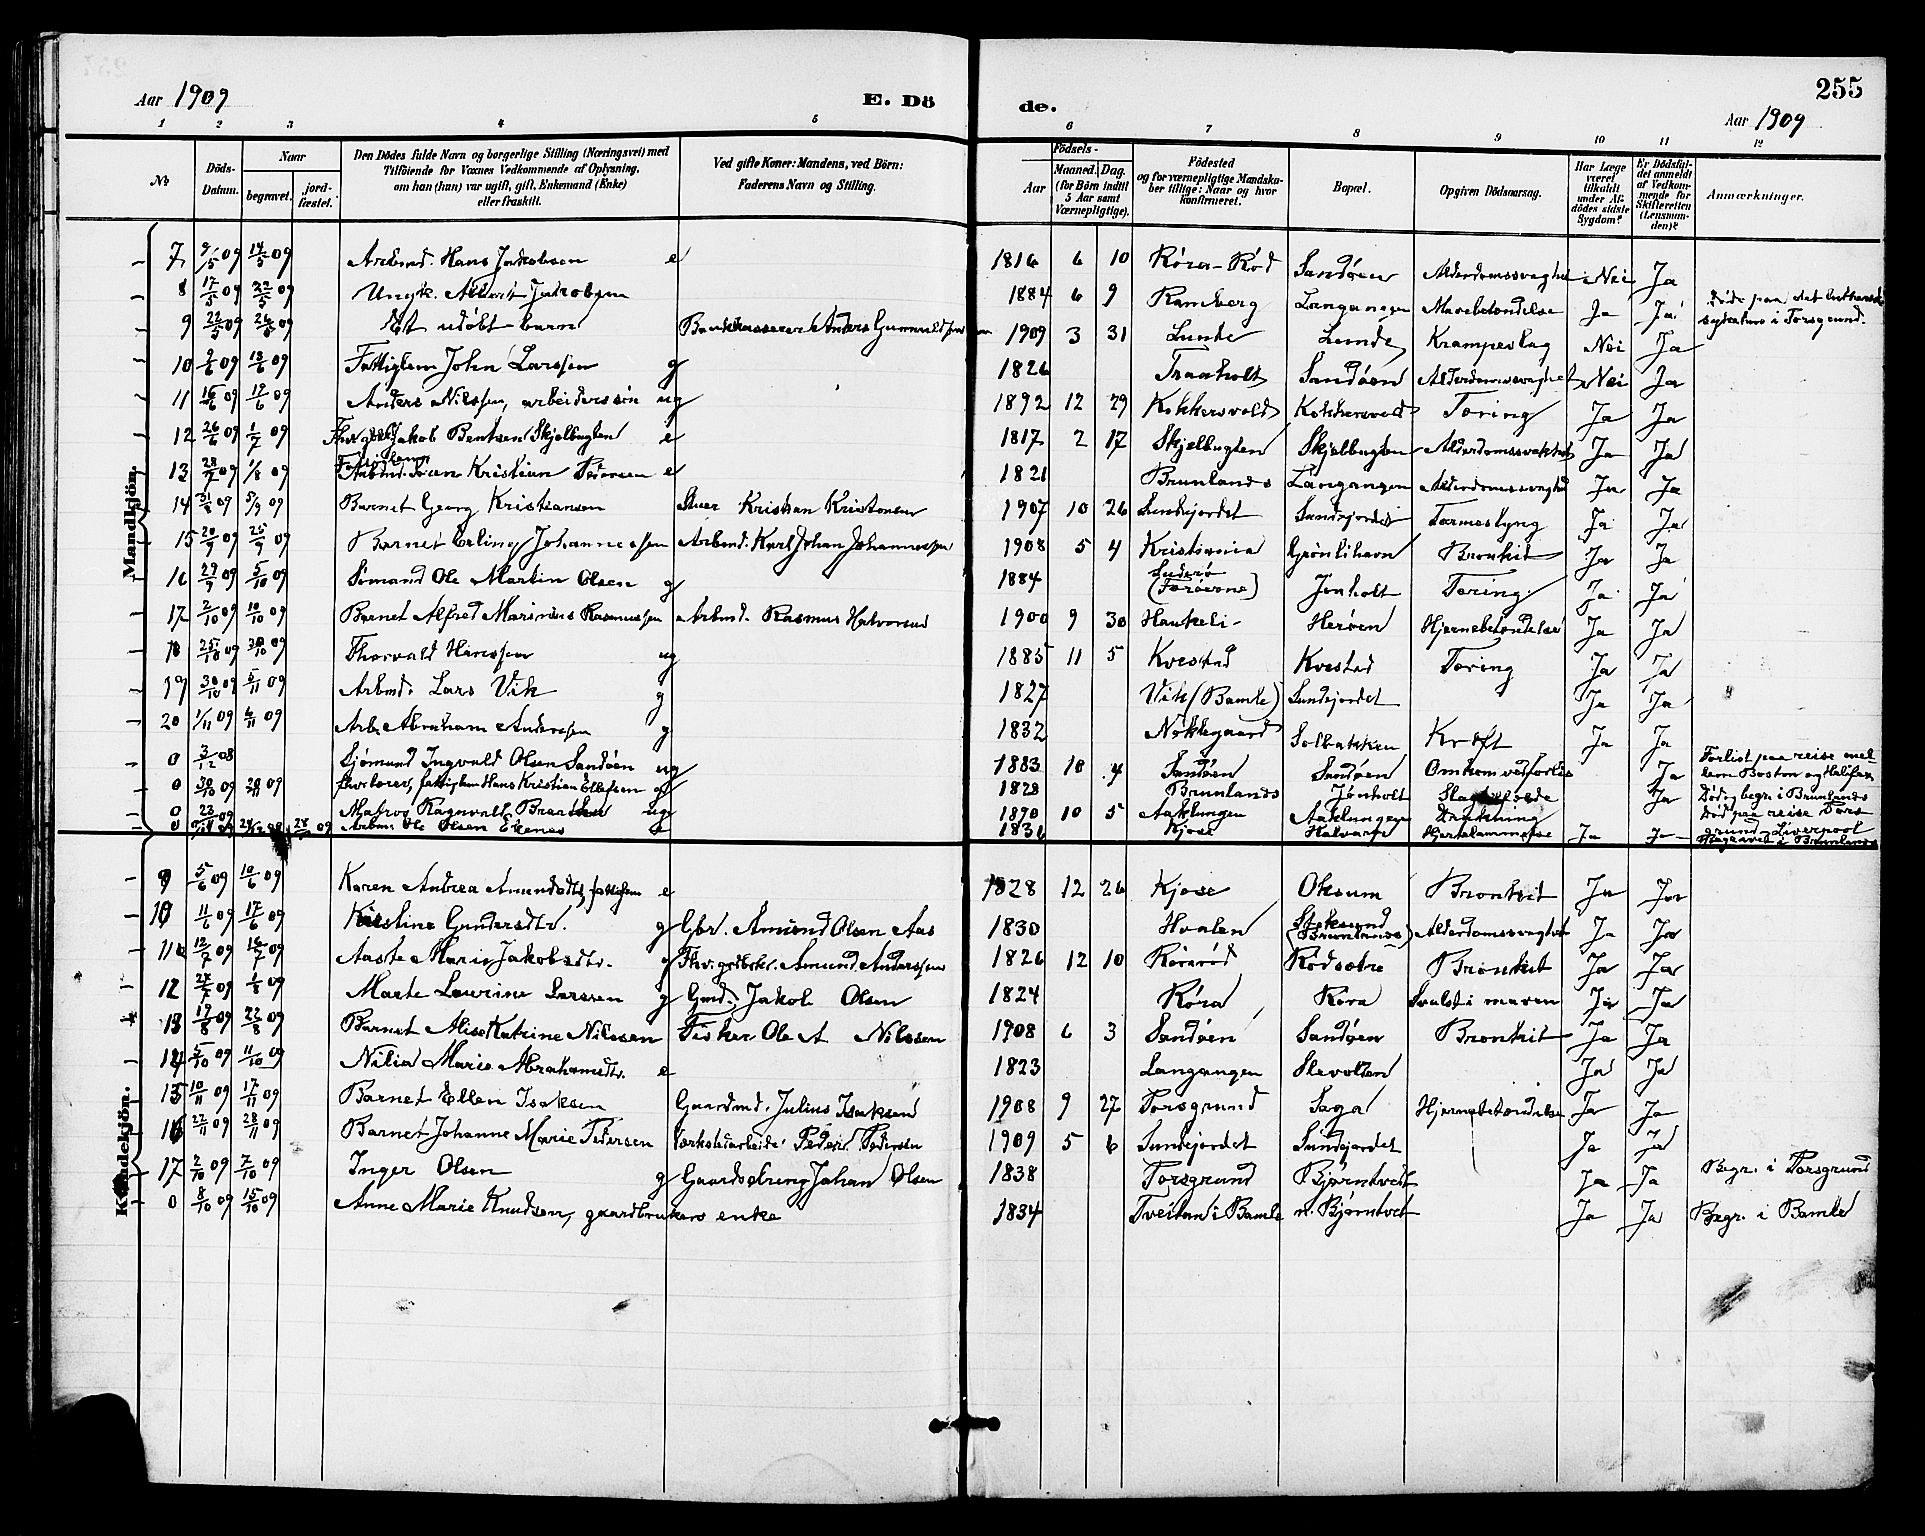 255
Aar 1909 E. Dö de. Aar 1909
1 2 3 4 5 6 7 8 9 10 11 12
№ Döds-Datum. Naar begravet. jord-fæstet. Den Dödes fulde Navn og borgerlige Stilling (Næringsvei) med Tilföiende for Voxnes Vedkommende af Oplysning, om han (hun) var ugift, gift, Enkemand (Enke) eller fraskilt. Ved gifte Koner: Mandens, ved Börn: Faderens Navn og Stilling. Födsels- Aar Maaned. Dag. (for Börn indtil 5 Aar samt Værnepligtige). Födested og for værnepligtige Mandskaber tillige: Naar og hvor konfirmeret. Bopæl. Opgiven Dödsaarsag. Har Læge været tilkaldt under Afdödes sidste Sygdom? Er Dödsfaldet anmeldt af Vedkommende for Skifteretten (Lensmanden)? Anmærkninger.
Mandkjön.
7 9/5 09 14/5 09 Arbmd. Hans Jakobsen e 1816 6 10 Röra-Röd Sandöen Alderdomssvaghet Nei Ja
8 17/5 09 22/5 09 Ungk. Albert Jakobsen 1884 6 9 Ramberg Langangen Mavebetændelse Ja Ja Döde paa det lutherske sykehus i Porsgrund.
9 22/5 09 26/5 09 Et udöbt barn Bankkasserer Anders Gunnuldsen 1909 3 31 Lunde Lunde Krampeslag Nei Ja
10 9/6 09 13/6 09 Fattiglem John Larssen g 1826 Traaholt Sandöen Alderdomssvaghet Nei Ja
11 16/6 09 17/6 09 Anders Nilssen, arbeiderssön ug 1892 12 29 Kokkersvold Kokkersvold Tæring Ja Ja
12 26/6 09 1/7 09 Jakob Bentsen Skjelbugten e 1817 2 17 Skjelbugten Skjelbugten Ja Ja
13 28/7 09 1/8 09 Kristian e 1821 Brunlands Langangen Alderdomssvaghed Ja Ja
14 31/8 09 5/9 09 Barnet Georg Kristiansen Kristian Kristensen 1907 10 26 Lundejordet Lundejordet Tarmeslyng Ja Ja
15 20/9 09 25/9 09 Barnet Erling Johannessen Arbmd. Karl Johan Johannessen 1908 5 4 Kristiania Grönlihavn Bronkit Ja Ja
16 29/9 09 5/10 09 Sömand Ole Martin Olsen g 1884 Suderö (Færöerne) Jönholt Tæring Ja Ja
17 7/10 09 10/10 09 Barnet Alfred Marinius Rasmussen Arbmd. Rasmus Halvorsen 1900 9 30 Haukeli- Heröen Hjernebetændelse Ja Ja
18 25/10 09 30/10 09 Thorvald Hanssen ug 1885 11 5 Kvestad Kvestad Tæring Ja Ja
19 30/10 09 5/11 09 Arbmd. Lars Vik g 1827 Vik (Bamle) Lundejordet Ja Ja
20 1/11 09 6/11 09 Arb. Abraham Andersen g 1832 Nöklegaard Solbakken Kræft Ja Ja
0 3/12 08 Sjömand Ingvald Olsen Sandöen ug 1883 10 4 Sandöen Sandöen Omkom ved forlis Ja Forlist paa reise mellem Boston og Halifax
0 30/10 09 09 Hans Kristian Ellefsen g 1828 Brunlands Jönholt Ja Död, begr. i Brunlands
0 23/ 09 Matros Ragnvald ug 1890 10 5 Aaklungen Aaklungen Drukning Död paa reise Porsgrund-Liverpool
0 09 24/12 09 28/ 09 Arbm. Ole Olsen Ekenes e 1836 Kjose Halvarp Hjertelammelse Ja Ja Begravet i Brunlands
Kvindekjön.
9 5/6 09 10/6 09 Karen Andrea Amundsdtr, fattiglem e 1828 12 26 Kjose Oksum Bronkit Ja Ja
10 11/6 09 17/6 09 Kirstine Gundersdtr. g Gbr. Amund Olsen Aas 1830 Hvalen Stoksund (Brunlands) Alderdomssvaghet Ja Ja
11 12/7 09 16/7 09 Aaste Marie Jakobsdtr. g Amund Anderssen 1826 12 10 Röraröd Rödsætre Bronkit Ja Ja
12 28/7 09 1/8 09 Marte Lovrine Larssen g Gmd. Jakob Olsen 1824 Röra Röra Svulst i maven Ja Ja
13 17/8 09 22/8 09 Barnet Alise Katrine Nilssen Fisker Ole A Nilssen 1908 6 3 Sandöen Sandöen Bronkit Ja Ja
14 5/10 09 11/10 09 Nilia Marie Abrahamsdtr. e 1823 Langangen Slevolden Ja Ja
15 10/11 09 17/11 09 Barnet Ellen Isaksen Gaardmd. Julius Isaksen 1908 9 27 Porsgrund Saga Hjernebetændelse Ja Ja
16 22/11 09 28/11 09 Barnet Johanne Marie Pedersen Værkstedarbeider Peder Pedersen 1909 5 6 Lundejordet Lundejordet Ja Ja
17 2/10 09 7/10 09 Inger Olsen g Gaardsdreng Johan Olsen 1838 Porsgrund Bjørntvedt Ja Ja Begr. i Porsgrund
0 8/10 09 15/10 09 Anne Marie Knudsen, gaardbrukers enke 1834 Tveitan i Bamle n. Bjørntvet Ja Ja Begr. i Bamle